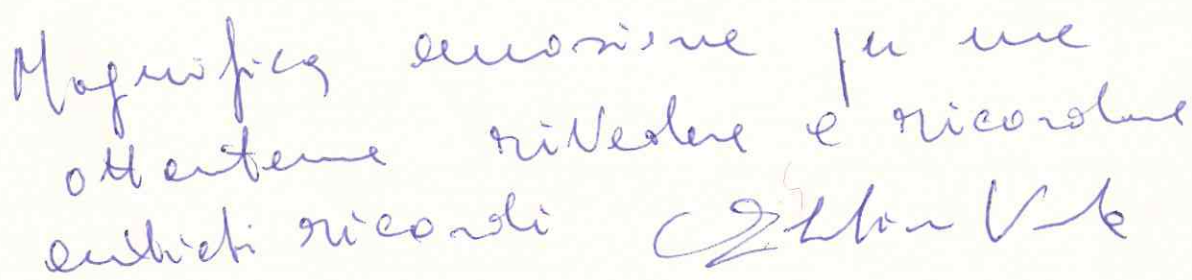 Magnifica emozione per me
ottantenne rivedere e ricordare
antichi ricordi